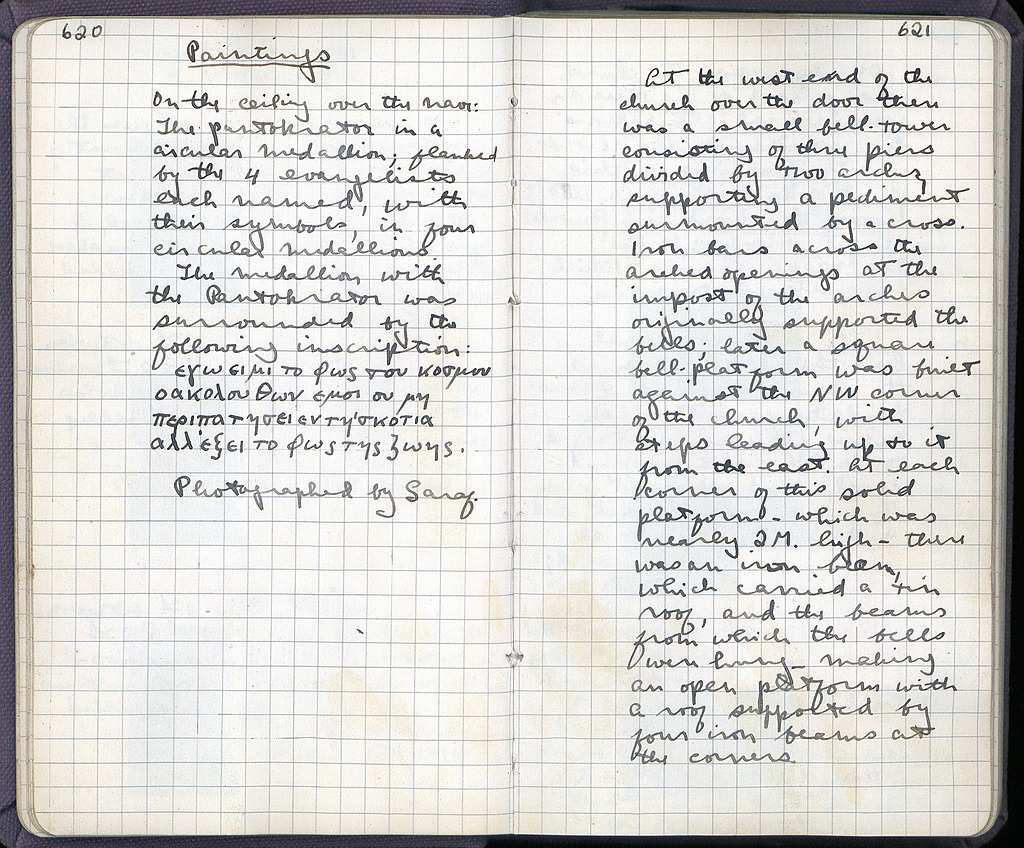 620
Paintings
On the ceiling over the nave:
The pantokrator in a
circular medallion; flanked
by the 4 evangelists
each named, with
their symbols, in four
circular medallions.
The medallion with
the Pantokrator was
surrounded by the
following inscription:
εγω ειμι το φως του κοσμου
ο ακολουθων εμοι ου μη
περιπατησει εν τη σκοτια
αλλ' εξει το φως της ζωης.
Photographed by Saraf.
621
At the west end of the
church over the door there
was a small bell-tower
consisting of three piers
divided by two arches,
supporting a pediment
surmounted by a cross.
Iron bars across the
arched openings at the
impost of the arches
originally supported the
bells; later a square
bell-platform was built
against the NW corner
of the church, with
steps leading up to it
from the east. At each
corner of this solid
platform - which was
nearly 2 M. high - there
was an iron beam,
which carried a tin
roof, and the beams
from which the bells
were hung - making
an open platform with
a roof supported by
four iron beams at
the corners